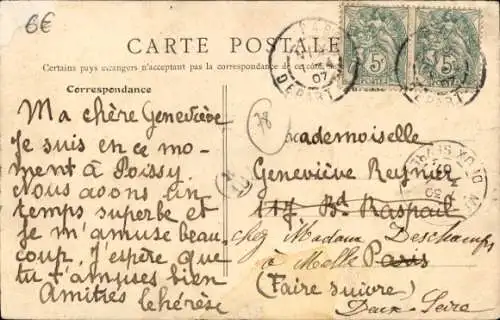 6€
CARTE POSTALE
Certains pays étrangers n'acceptent pas la correspondance de ce côté
Correspondance
Ma chère Geneviève
Je suis en ce mo-
ment à Poissy.
Nous avons un
temps superbe et
je m'amuse beau
coup. J'espère que
tu t'amuses bien
Amitiés Thérèse
78
DEPART
07
5c
5c
DEPART
07
Mademoiselle
Geneviève Reynier
117 Bd Raspail
chez Madame Deschamps
à Melle Paris
(Faire suivre)
Deux Sèvres